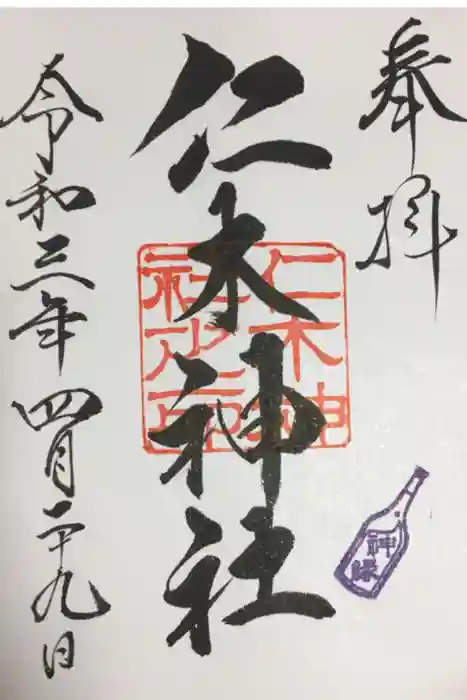 奉拝
仁木神社
仁木神
社之印
神縁
令和三年四月二十九日